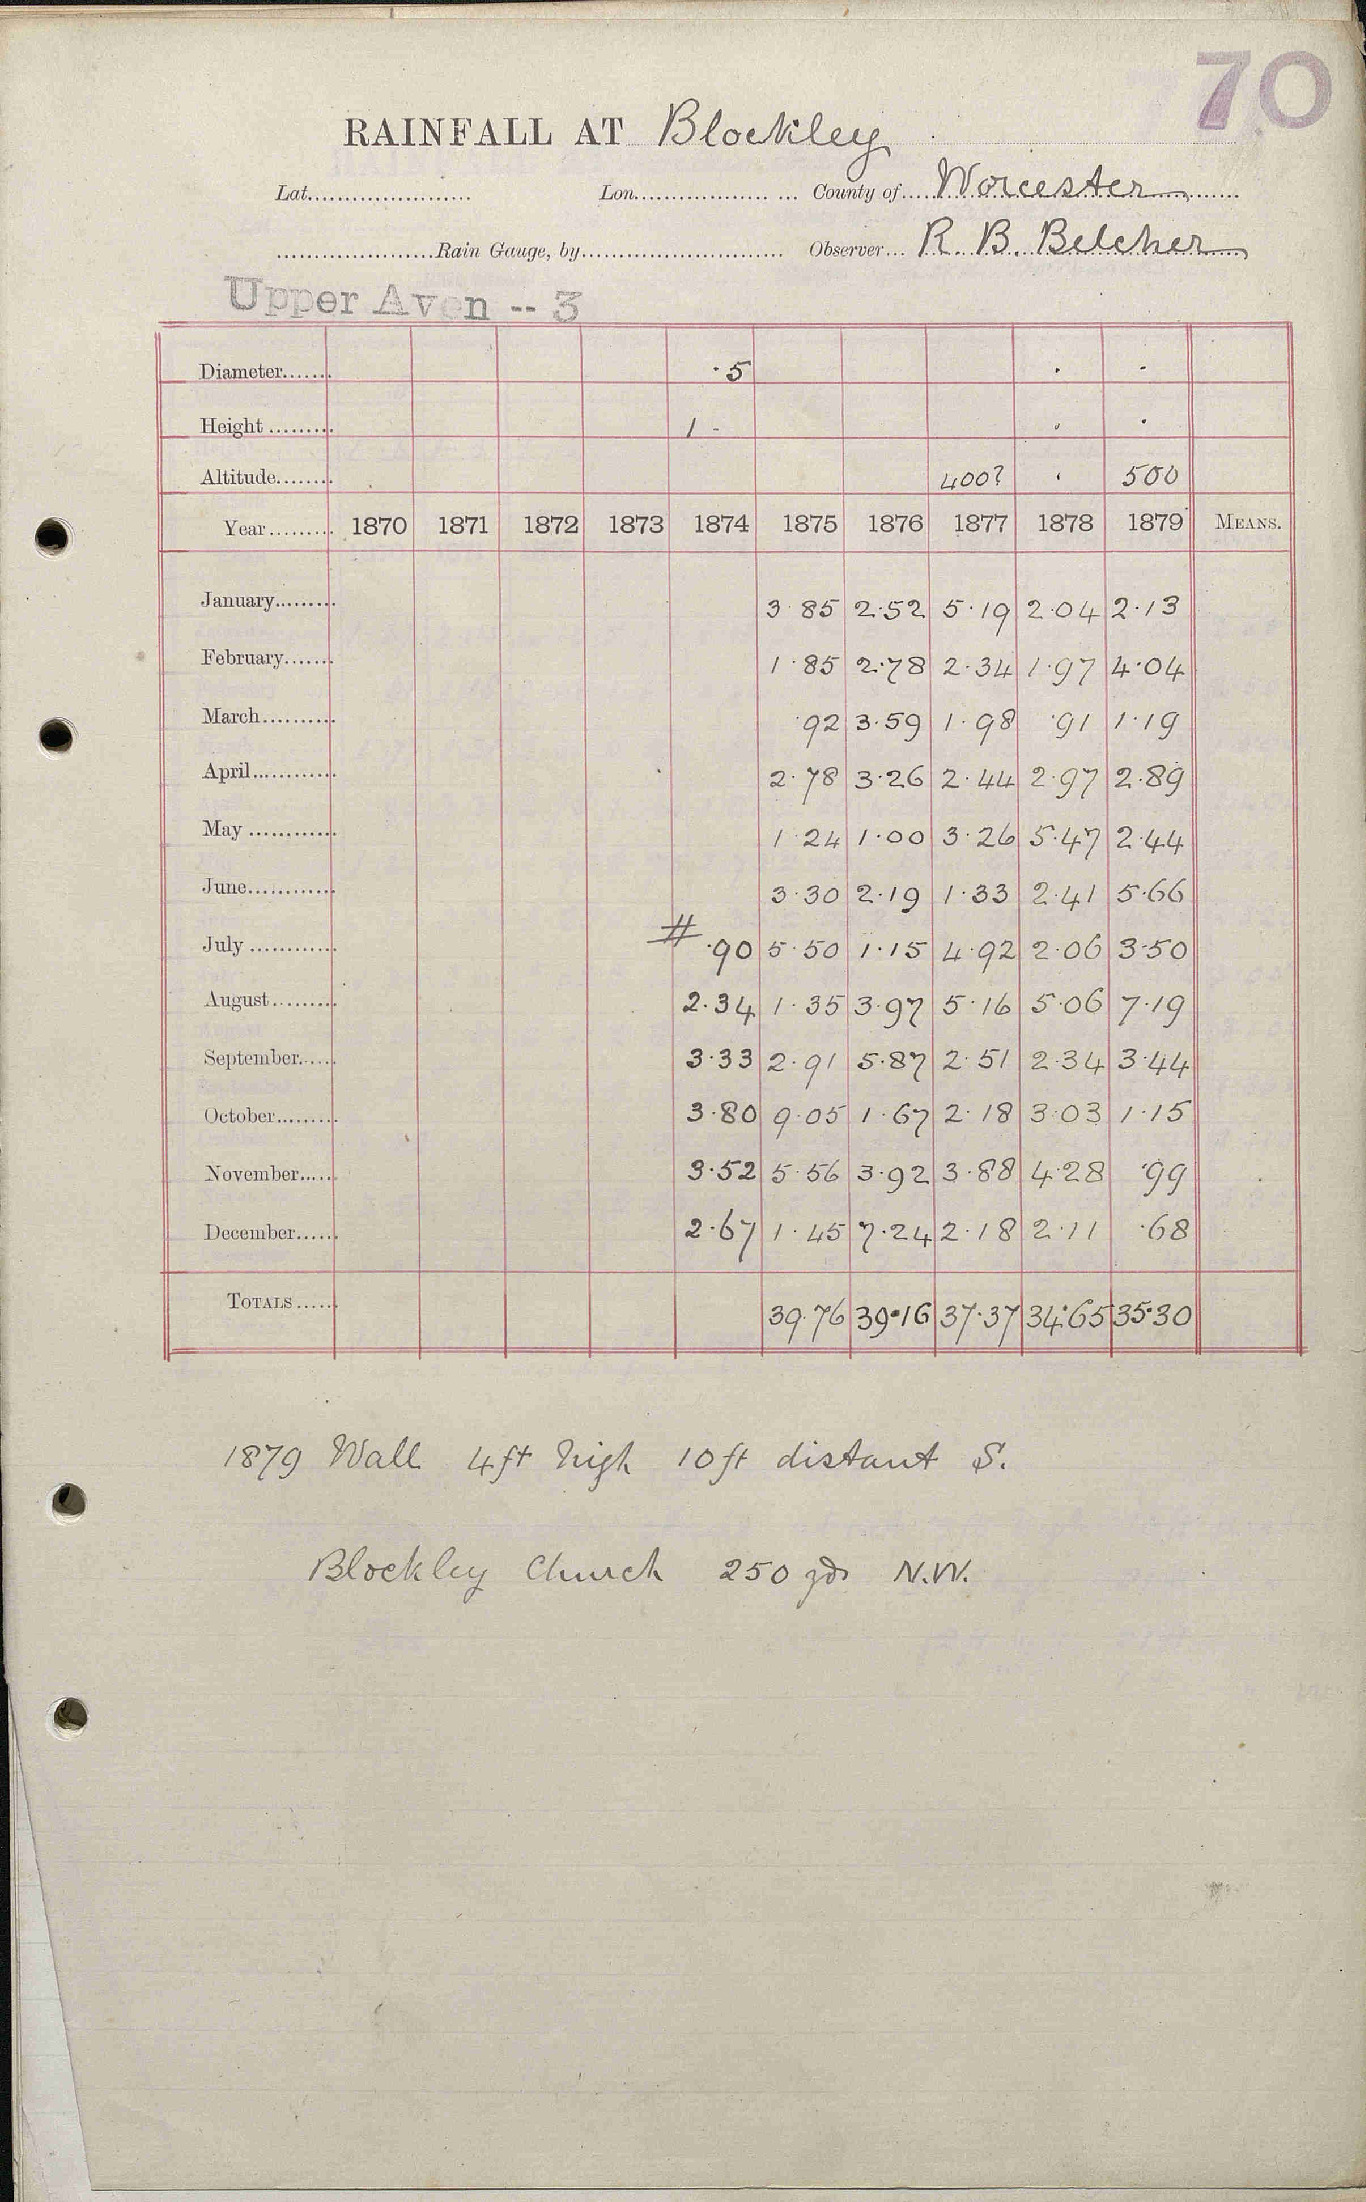 70
RAINFALL AT Blockley
Lat. Lon. County of Worcester
Rain Gauge, by Observer R. B. Belcher
Upper Avon -- 3
Diameter ·5 · ·
Height 1 - · ·
Altitude 400? · 500
Year 1870 1871 1872 1873 1874 1875 1876 1877 1878 1879 MEANS.
January 3·85 2·52 5·19 2·04 2·13
February 1·85 2·78 2·34 1·97 4·04
March ·92 3·59 1·98 ·91 1·19
April 2·78 3·26 2·44 2·97 2·89
May 1·24 1·00 3·26 5·47 2·44
June 3·30 2·19 1·33 2·41 5·66
July # ·90 5·50 1·15 4·92 2·06 3·50
August 2·34 1·35 3·97 5·16 5·06 7·19
September 3·33 2·91 5·87 2·51 2·34 3·44
October 3·80 9·05 1·67 2·18 3·03 1·15
November 3·52 5·56 3·92 3·88 4·28 ·99
December 2·67 1·45 7·24 2·18 2·11 ·68
TOTALS 39·76 39·16 37·37 34·65 35·30
1879 Wall 4ft high 10ft distant S.
Blockley Church 250 yds N.W.